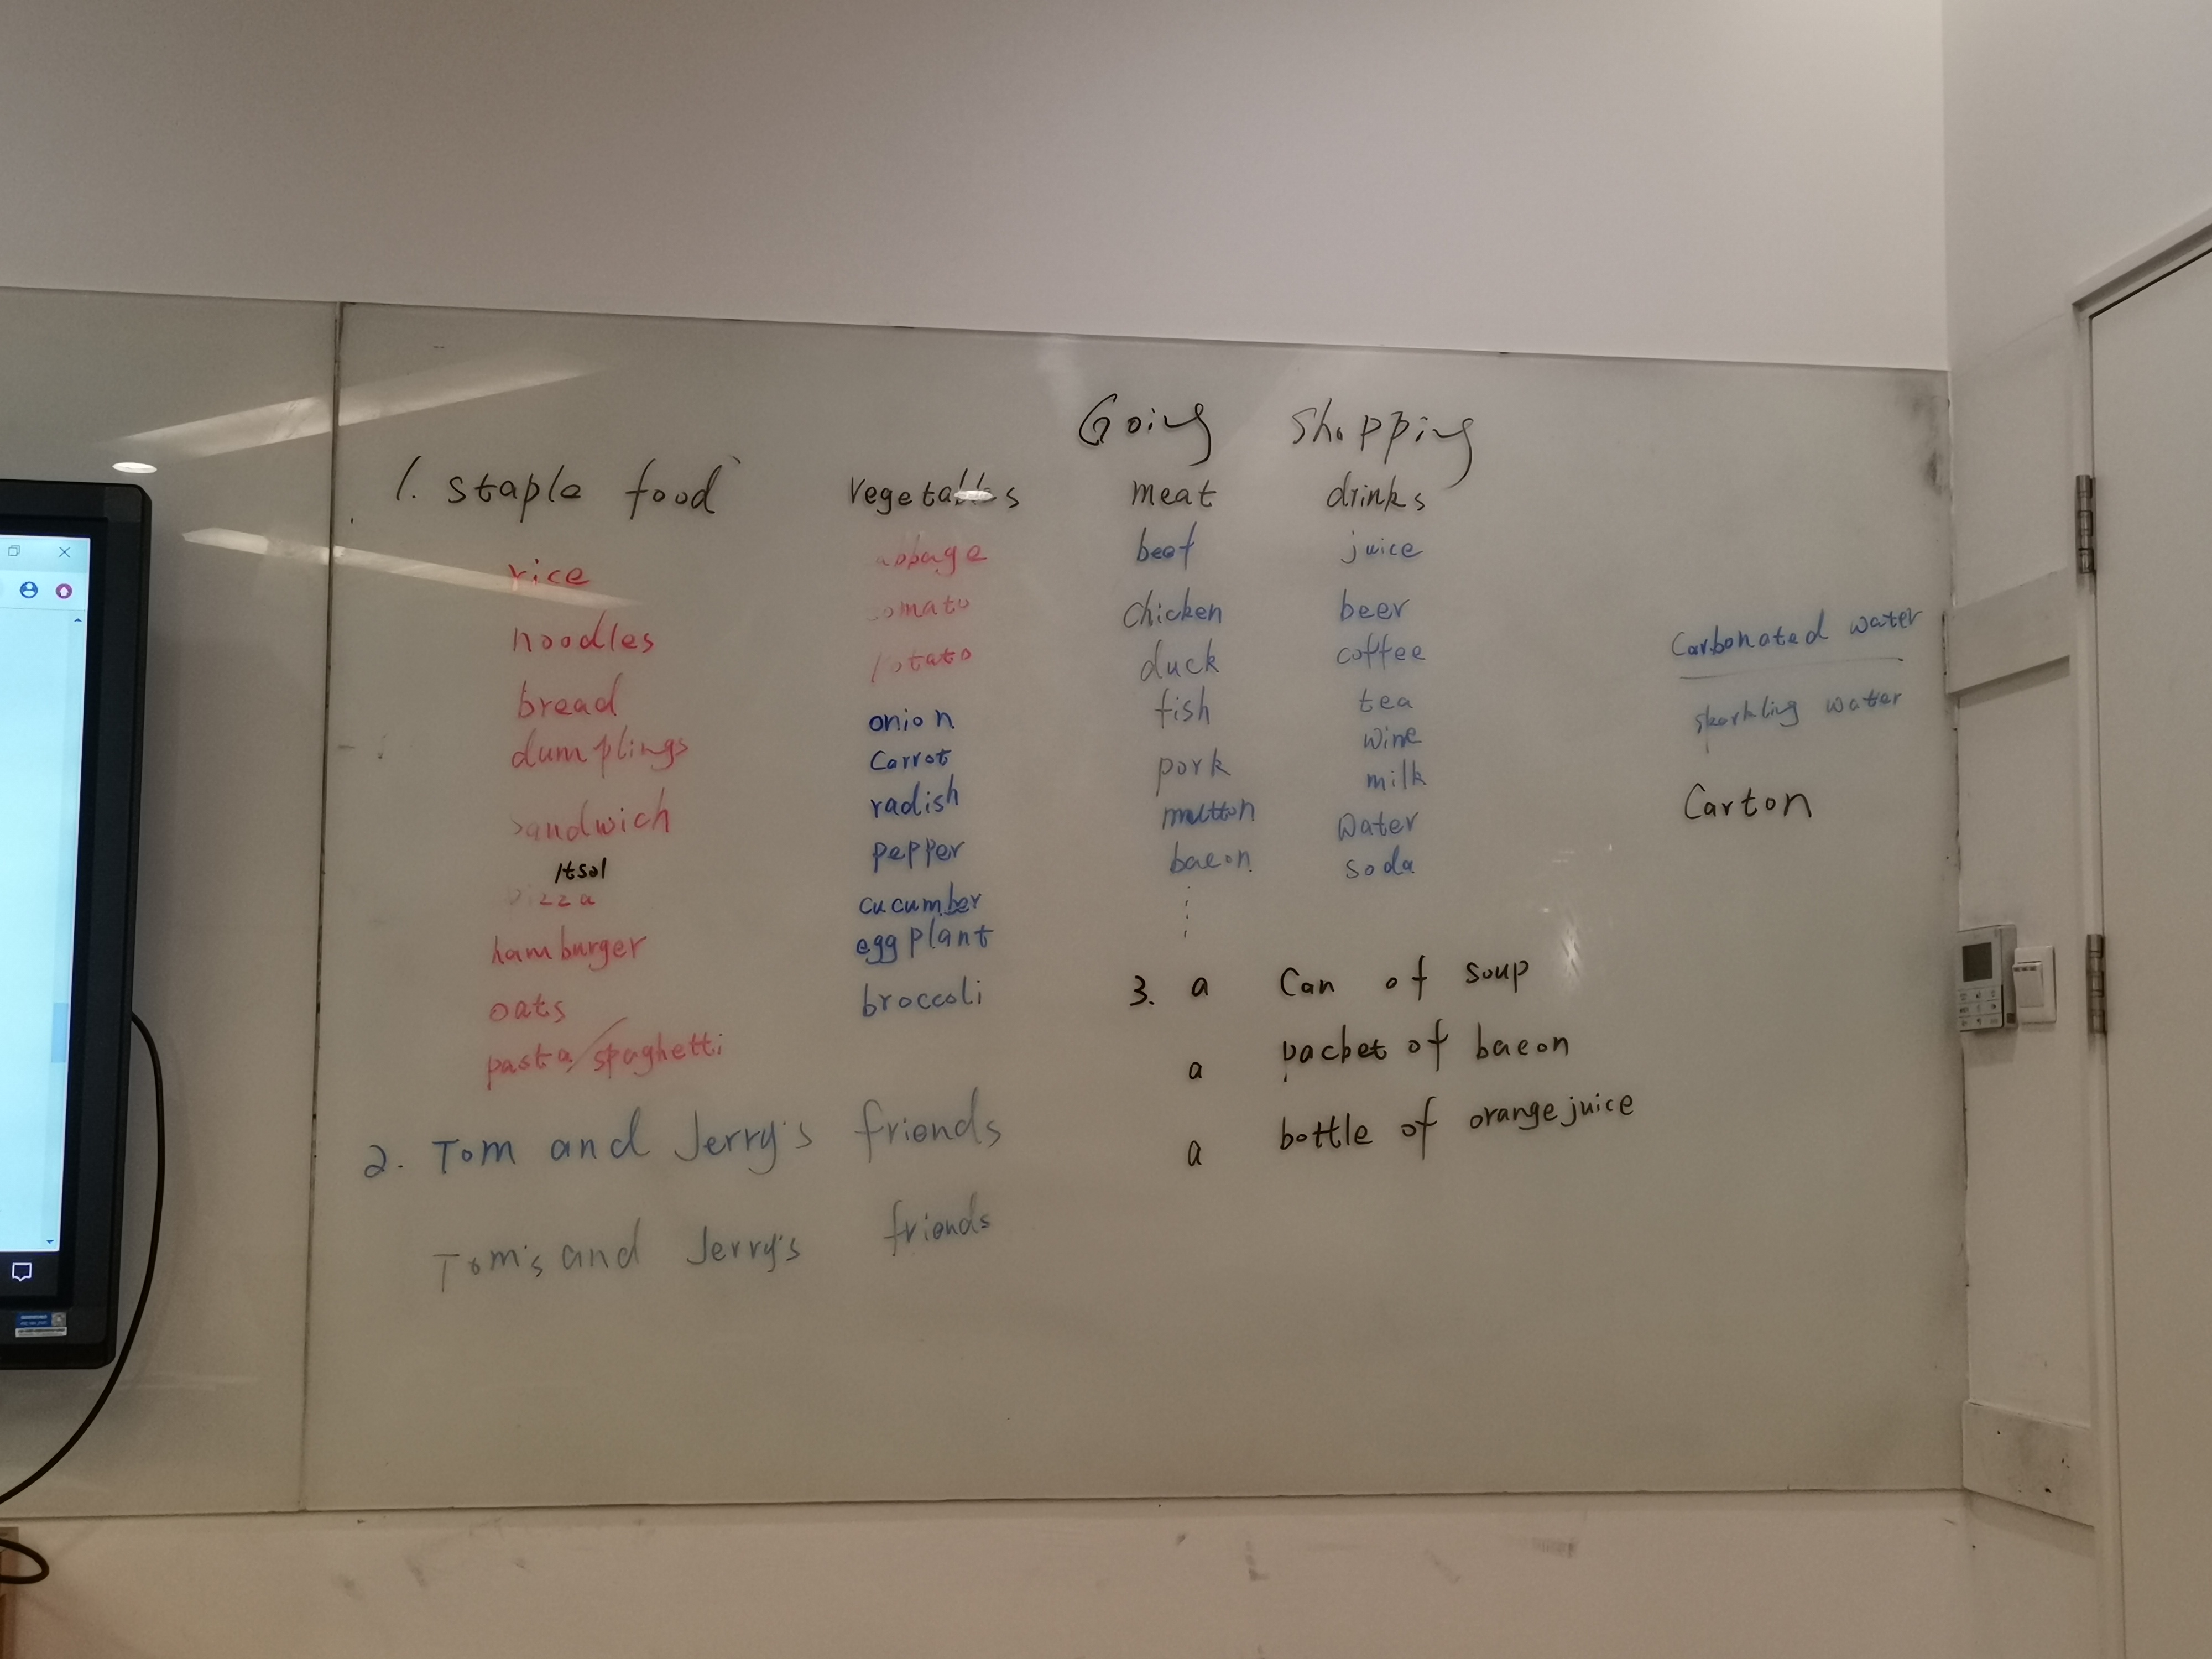 Going Shopping
1. staple food
rice
noodles
bread
dumplings
sandwich
pizza
hamburger
oats
pasta/spaghetti
vegetables
onion
Carrot
radish
pepper
cucumber
eggplant
broccoli
meat
beef
chicken
duck
fish
pork
mutton
bacon
drinks
juice
beer
coffee
tea
wine
milk
water
soda
Carbonated water
sparkling water
Carton
2. Tom and Jerry's friends
Tom's and Jerry's friends
3. a Can of soup
a packet of bacon
a bottle of orange juice